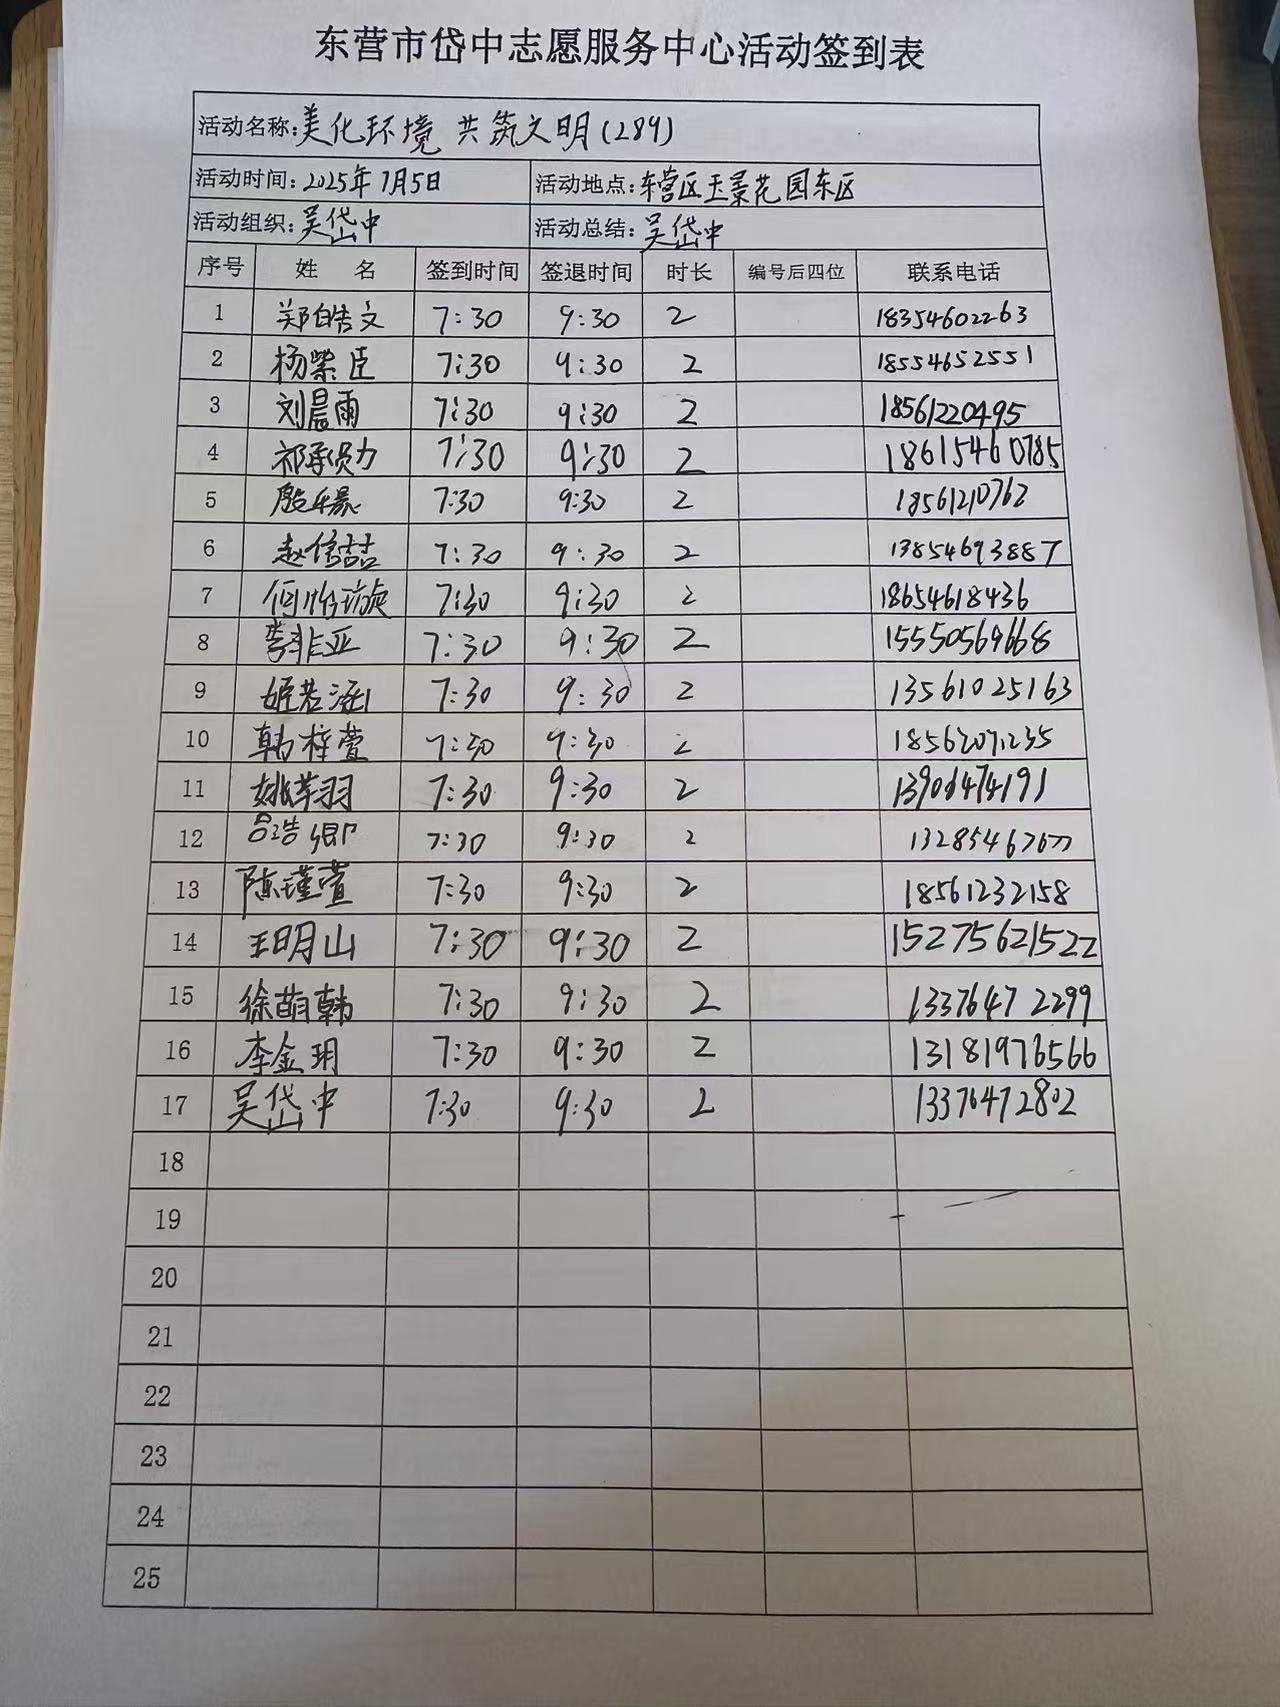 东营市岱中志愿服务中心活动签到表
活动名称:美化环境 共筑文明(289)
活动时间:2025年7月5日 活动地点:东营区玉景花园东区
活动组织:吴岱中 活动总结:吴岱中
序号 姓 名 签到时间 签退时间 时长 编号后四位 联系电话
1 郑皓文 7:30 9:30 2 18354602263
2 杨紫臣 7:30 9:30 2 18554652551
3 刘晨雨 7:30 9:30 2 18561220495
4 7:30 9:30 2 18615460785
5 7:30 9:30 2 18561210762
6 赵信喆 7:30 9:30 2 13854693887
7 何怡璇 7:30 9:30 2 18654618436
8 李非亚 7:30 9:30 2 15550569668
9 姬若涵 7:30 9:30 2 13561025163
10 韩梓萱 7:30 9:30 2 18562071235
11 姚芊羽 7:30 9:30 2 13906474191
12 7:30 9:30 2
13 陈瑾萱 7:30 9:30 2 18561232158
14 王明山 7:30 9:30 2 15275621522
15 徐萌韩 7:30 9:30 2 13376472299
16 李金玥 7:30 9:30 2 13181976566
17 吴岱中 7:30 9:30 2 13376472802
18
19
20
21
22
23
24
25